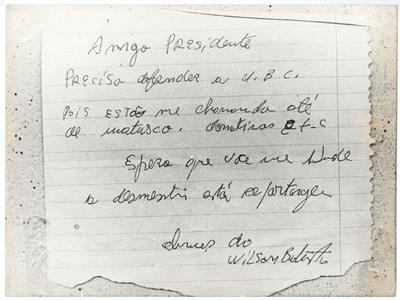 Amigo Presidente
Preciso defender a U.B.C.
Pois estão me chamando até
de mutusco. donativos etc
Espero que voce me ajude
a desmentir está reportagem
abraços do
Wilson Batista